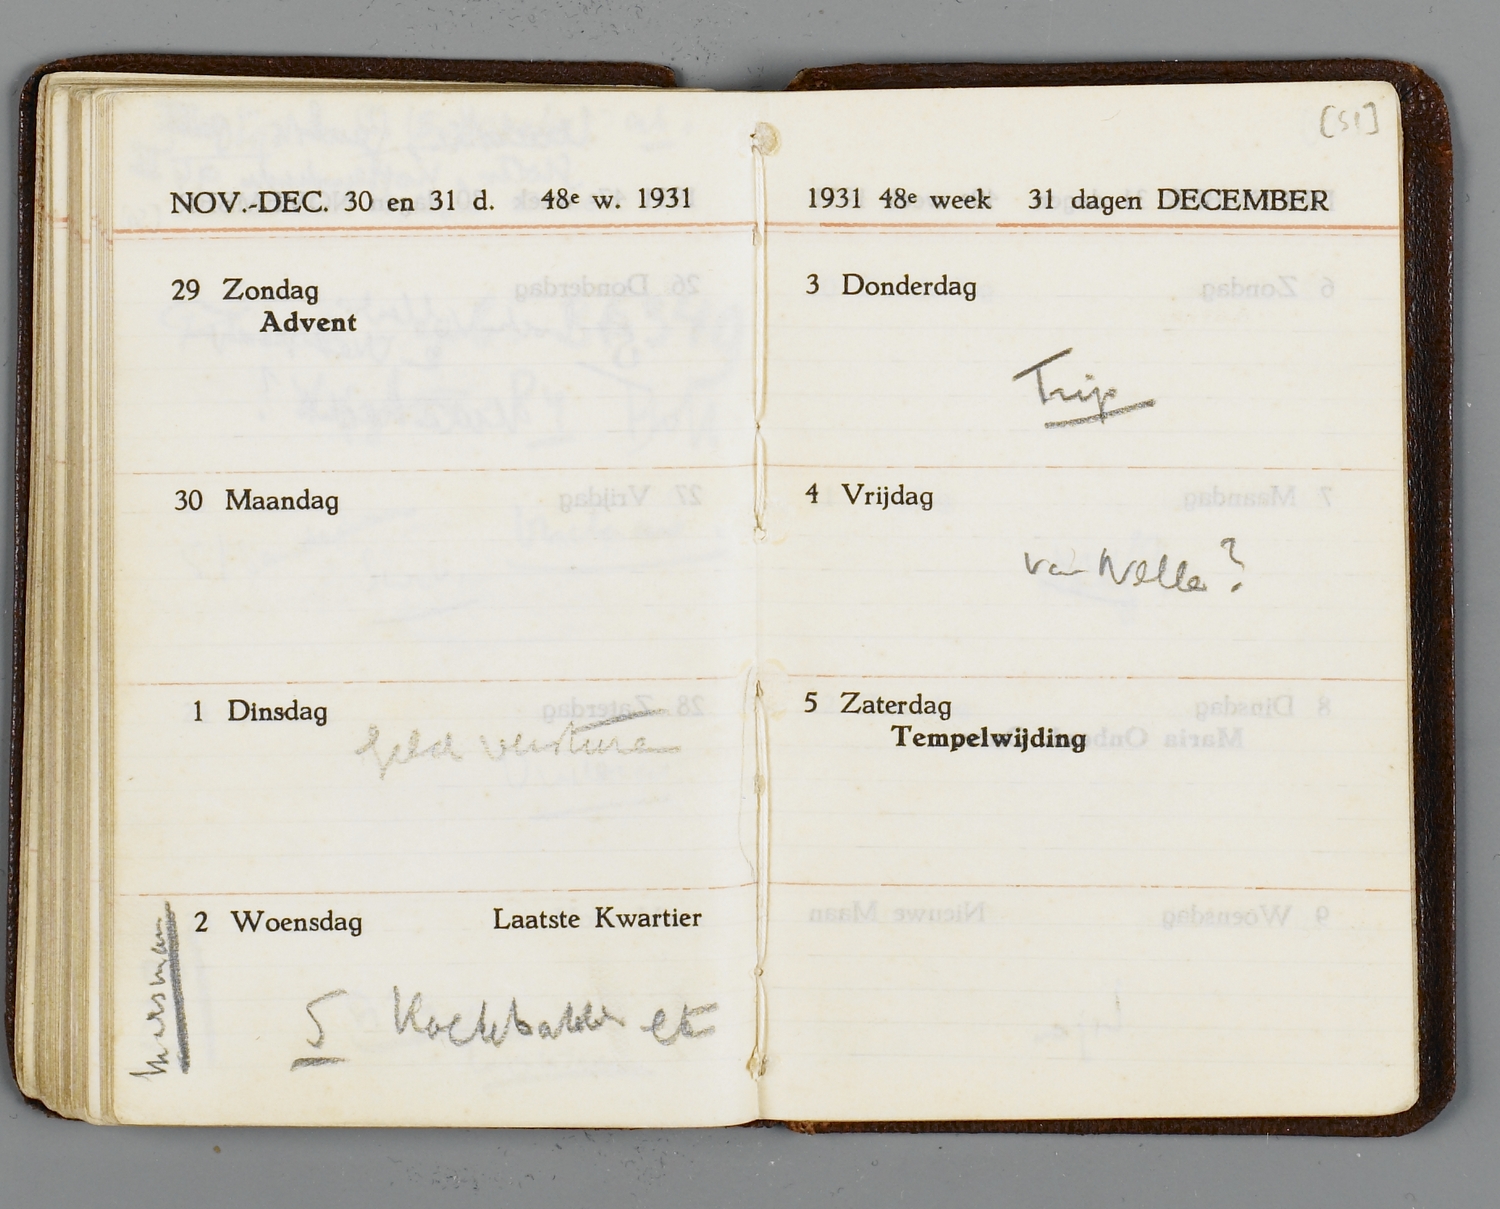 NOV.-DEC. 30 en 31 d. 48e w. 1931
29 Zondag
Advent
30 Maandag
1 Dinsdag
Geld versturen
2 Woensdag Laatste Kwartier
5 Koekebakker etc
[51]
1931 48e week 31 dagen DECEMBER
3 Donderdag
Trip
4 Vrijdag
van Nelle?
5 Zaterdag
Tempelwijding